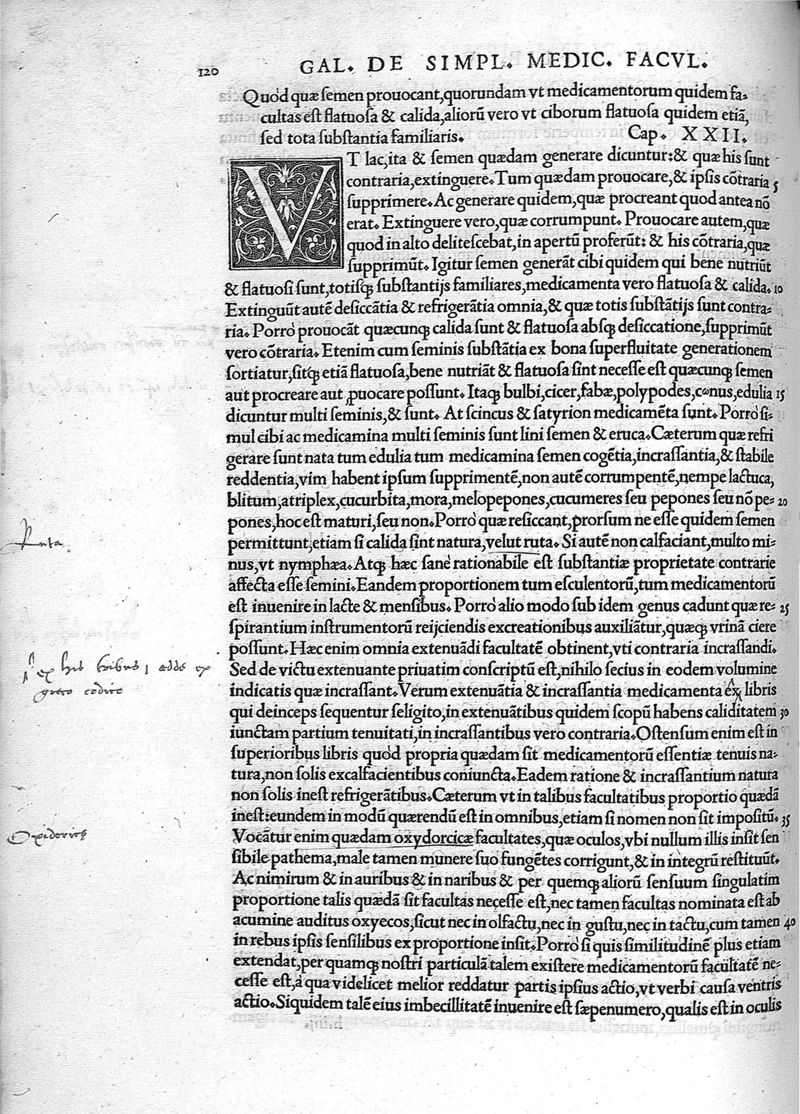 120
GAL. DE SIMPL. MEDIC. FACVL.
Quòd quæ ſemen prouocant, quorundam vt medicamentorum quidem fa-
cultas eſt flatuoſa & calida, aliorũ vero vt ciborum flatuoſa quidem etiã,
ſed tota ſubſtantia familiaris. Cap. XXII.
VT lac, ita & ſemen quædam generare dicuntur: & quæ his ſunt
contraria, extinguere. Tum quædam prouocare, & ipſis cõtraria 5
ſupprimere. Ac generare quidem, quæ procreant quod antea nõ
erat. Extinguere vero, quæ corrumpunt. Prouocare autem, quæ
quod in alto deliteſcebat, in apertũ proferũt: & his cõtraria, quæ
ſupprimũt. Igitur ſemen generãt cibi quidem qui bene nutriũt
& flatuoſi ſunt, totiſq; ſubſtantijs familiares, medicamenta vero flatuoſa & calida. 10
Extinguũt autẽ deſiccãtia & refrigerãtia omnia, & quæ totis ſubſtãtijs ſunt contra-
ria. Porrò prouocãt quæcunq; calida ſunt & flatuoſa abſq; deſiccatione, ſupprimũt
vero cõtraria. Etenim cum ſeminis ſubſtãtia ex bona ſuperfluitate generationem
ſortiatur, ſitq; etiã flatuoſa, bene nutriãt & flatuoſa ſint neceſſe eſt quæcunq; ſemen
aut procreare aut ꝓuocare poſſunt. Itaq; bulbi, cicer, fabæ, polypodes, conus, edulia 15
dicuntur multi ſeminis, & ſunt. At ſcincus & ſatyrion medicamẽta ſunt. Porrò ſi-
mul cibi ac medicamina multi ſeminis ſunt lini ſemen & eruca. Cæterum quæ refri
gerare ſunt nata tum edulia tum medicamina ſemen cogẽtia, incraſſantia, & ſtabile
reddentia, vim habent ipſum ſupprimentẽ, non autẽ corrumpentẽ, nempe lactuca,
blitum, atriplex, cucurbita, mora, melopepones, cucumeres ſeu pepones ſeu nõ pe- 20
pones, hoc eſt maturi, ſeu non. Porrò quæ reſiccant, prorſum ne eſſe quidem ſemen
permittunt, etiam ſi calida ſint natura, velut ruta. Si autẽ non calfaciant, multo mi-
nus, vt nymphæa. Atq; hæc ſanè rationabile eſt ſubſtantiæ proprietate contrarie
affecta eſſe ſemini. Eandem proportionem tum eſculentorũ, tum medicamentorũ
eſt inuenire in lacte & menſibus. Porrò alio modo ſub idem genus cadunt quæ re- 25
ſpirantium inſtrumentorũ reijciendis excreationibus auxiliãtur, quæq; vrinã ciere
poſſunt. Hæc enim omnia extenuãdi facultatẽ obtinent, vti contraria incraſſandi.
Sed de victu extenuante priuatim conſcriptũ eſt, nihilo ſecius in eodem volumine
indicatis quæ incraſſant. Verum extenuãtia & incraſſantia medicamenta ex libris
qui deinceps ſequentur ſeligito, in extenuãtibus quidem ſcopũ habens caliditatem 30
iunctam partium tenuitati, in incraſſantibus vero contraria. Oſtenſum enim eſt in
ſuperioribus libris quòd propria quædam ſit medicamentorũ eſſentiæ tenuis na-
tura, non ſolis excalfacientibus coniuncta. Eadem ratione & incraſſantium natura
non ſolis ineſt refrigerãtibus. Cæterum vt in talibus facultatibus proportio quædã
ineſt: eundem in modũ quærendũ eſt in omnibus, etiam ſi nomen non ſit impoſitũ. 35
Vocãtur enim quædam oxydorcicæ facultates, quæ oculos, vbi nullum illis inſit ſen
ſibile pathema, male tamen munere ſuo fungẽtes corrigunt, & in integrũ reſtituũt.
Ac nimirum & in auribus & in naribus & per quemq; aliorũ ſenſuum ſingulatim
proportione talis quædã ſit facultas neceſſe eſt, nec tamen facultas nominata eſt ab
acumine auditus oxyecos, ſicut nec in olfactu, nec in guſtu, nec in tactu, cum tamen 40
in rebus ipſis ſenſilibus ex proportione inſit. Porrò ſi quis ſimilitudinẽ plus etiam
extendat, per quamq; noſtri particulã talem exiſtere medicamentorũ facultatẽ ne-
ceſſe eſt, à qua videlicet melior reddatur partis ipſius actio, vt verbi cauſa ventris
actio. Siquidem talẽ eius imbecillitatẽ inuenire eſt ſæpenumero, qualis eſt in oculis
Ruta.
ex his tribus, adde ex
greco codice